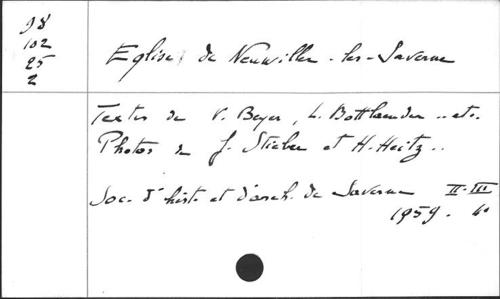 98
102
25
2
Eglise de Neuwiller-les-Saverne
Textes de V. Beyer, L. Bottlaender .. etc.
Photos de J. Stieber et H. Heitz..
Soc. d'hist. et d'arch. de Saverne II-III
1959. 4°